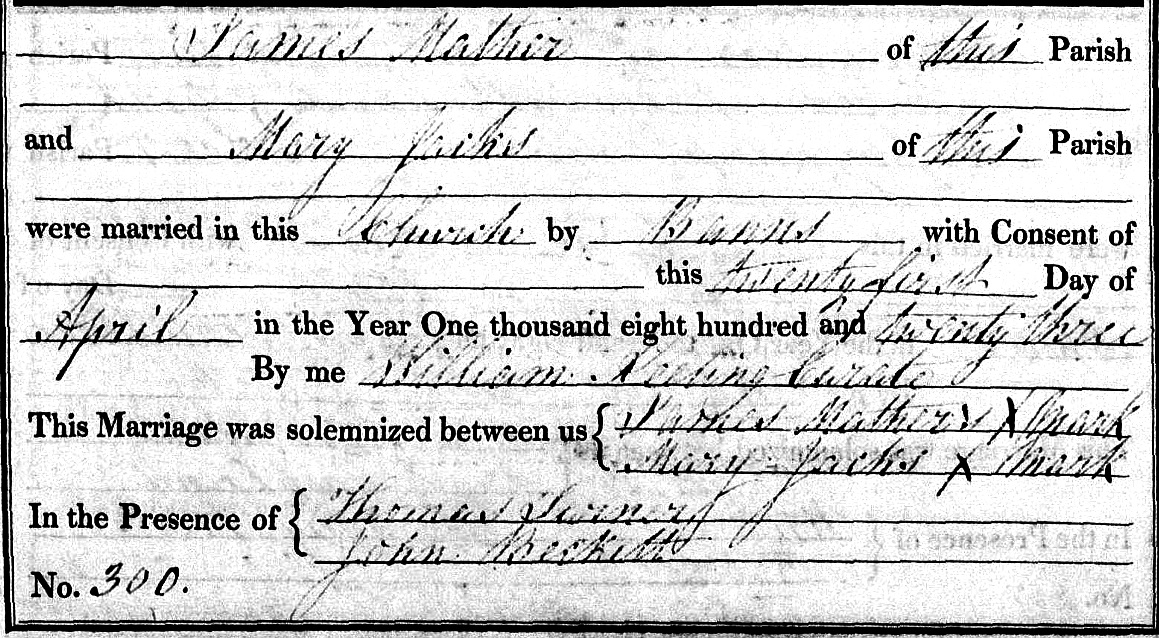 James Mather of this Parish
and Mary Jacks of this Parish
were married in this Church by Banns with Consent of
this twenty first Day of
April in the Year One thousand eight hundred and twenty three
By me William Keeling Curate
This Marriage was solemnized between us { James Mather's X mark
Mary Jacks X mark
In the Presence of { Thomas Turner
John Beckett
No. 300.